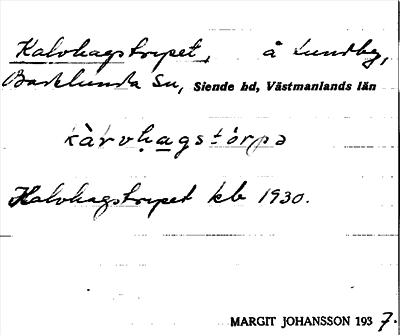 Kalvhagstorpet, å Lundby,
Barkelunda Sn, Siende hd, Västmanlands län
kàrvhagstórpə
Kalvhagstorpet kb 1930.
MARGIT JOHANSSON 1937.